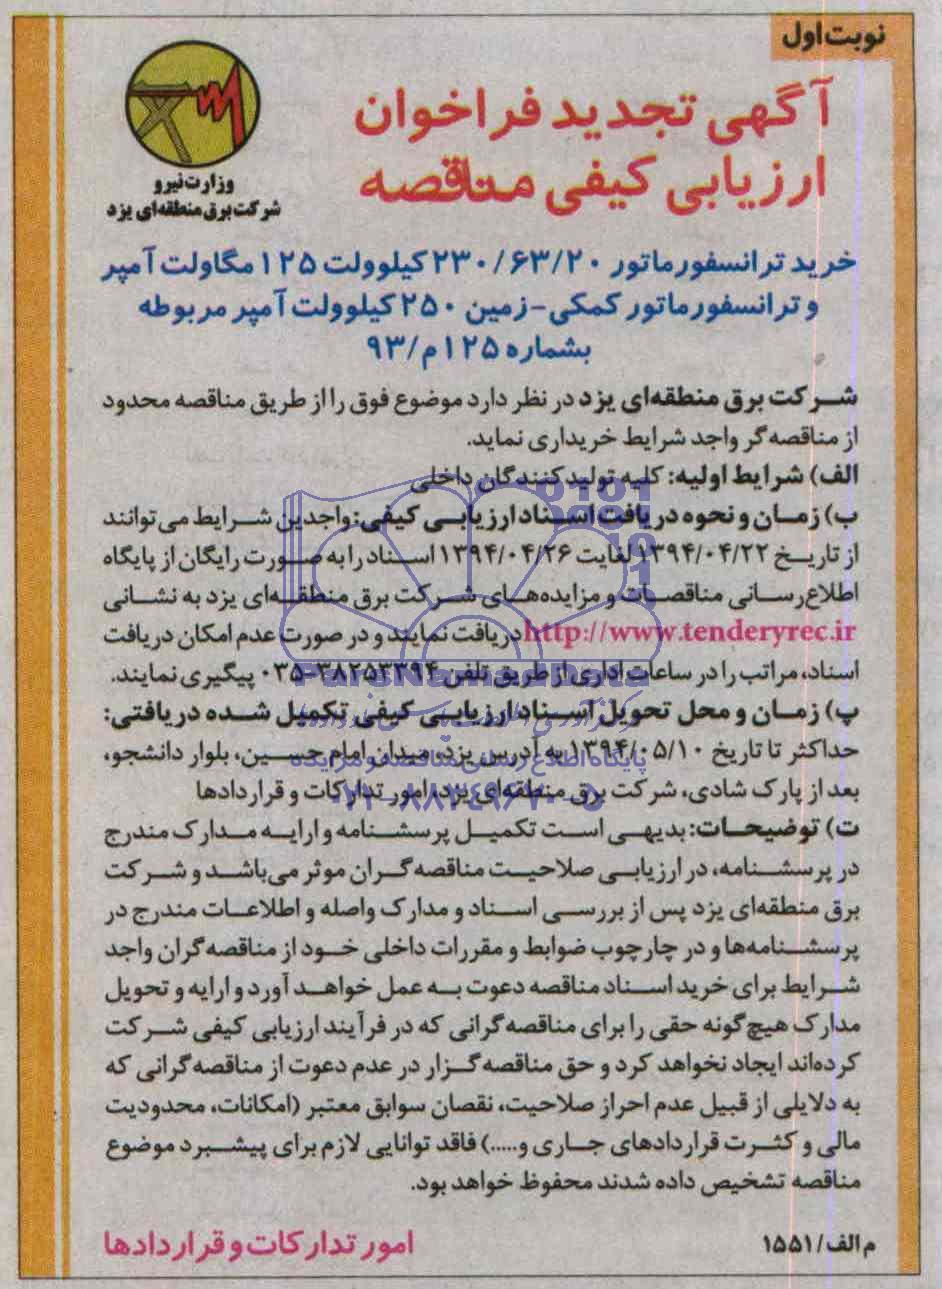 نوبت اول
آگهی تجدید فراخوان
ارزیابی کیفی مناقصه
وزارت نیرو
شرکت برق منطقه‌ای یزد
خرید ترانسفورماتور ۲۳۰/۶۳/۲۰ کیلوولت ۱۲۵ مگاولت آمپر
و ترانسفورماتور کمکی-زمین ۲۵۰ کیلوولت آمپر مربوطه
بشماره ۱۲۵م/۹۳
شرکت برق منطقه‌ای یزد در نظر دارد موضوع فوق را از طریق مناقصه محدود
از مناقصه‌گر واجد شرایط خریداری نماید.
الف) شرایط اولیه: کلیه تولیدکنندگان داخلی
ب) زمان و نحوه دریافت اسناد ارزیابی کیفی: واجدین شرایط می‌توانند
از تاریخ ۱۳۹۴/۰۴/۲۲ لغایت ۱۳۹۴/۰۴/۲۶ اسناد را به صورت رایگان از پایگاه
اطلاع‌رسانی مناقصات و مزایده‌های شرکت برق منطقه‌ای یزد به نشانی
http://www.tenderyrec.ir دریافت نمایند و در صورت عدم امکان دریافت
اسناد، مراتب را در ساعات اداری از طریق تلفن ۳۸۲۵۳۳۹۴-۰۳۵ پیگیری نمایند.
پ) زمان و محل تحویل اسناد ارزیابی کیفی تکمیل شده دریافتی:
حداکثر تا تاریخ ۱۳۹۴/۰۵/۱۰ به آدرس یزد، میدان امام حسین، بلوار دانشجو،
بعد از پارک شادی، شرکت برق منطقه‌ای یزد، امور تدارکات و قراردادها
ت) توضیحات: بدیهی است تکمیل پرسشنامه و ارایه مدارک مندرج
در پرسشنامه، در ارزیابی صلاحیت مناقصه‌گران موثر می‌باشد و شرکت
برق منطقه‌ای یزد پس از بررسی اسناد و مدارک واصله و اطلاعات مندرج در
پرسشنامه‌ها و در چارچوب ضوابط و مقررات داخلی خود از مناقصه‌گران واجد
شرایط برای خرید اسناد مناقصه دعوت به عمل خواهد آورد و ارایه و تحویل
مدارک هیچ‌گونه حقی را برای مناقصه‌گرانی که در فرآیند ارزیابی کیفی شرکت
کرده‌اند ایجاد نخواهد کرد و حق مناقصه‌گزار در عدم دعوت از مناقصه‌گرانی که
به دلایلی از قبیل عدم احراز صلاحیت، نقصان سوابق معتبر (امکانات، محدودیت
مالی و کثرت قراردادهای جاری و.....) فاقد توانایی لازم برای پیشبرد موضوع
مناقصه تشخیص داده شدند محفوظ خواهد بود.
م الف/۱۵۵۱
امور تدارکات و قراردادها
ParsNamadData
پایگاه اطلاع رسانی مناقصه و مزایده
۰۲۱-۸۸۳۴۹۶۷۰-۵